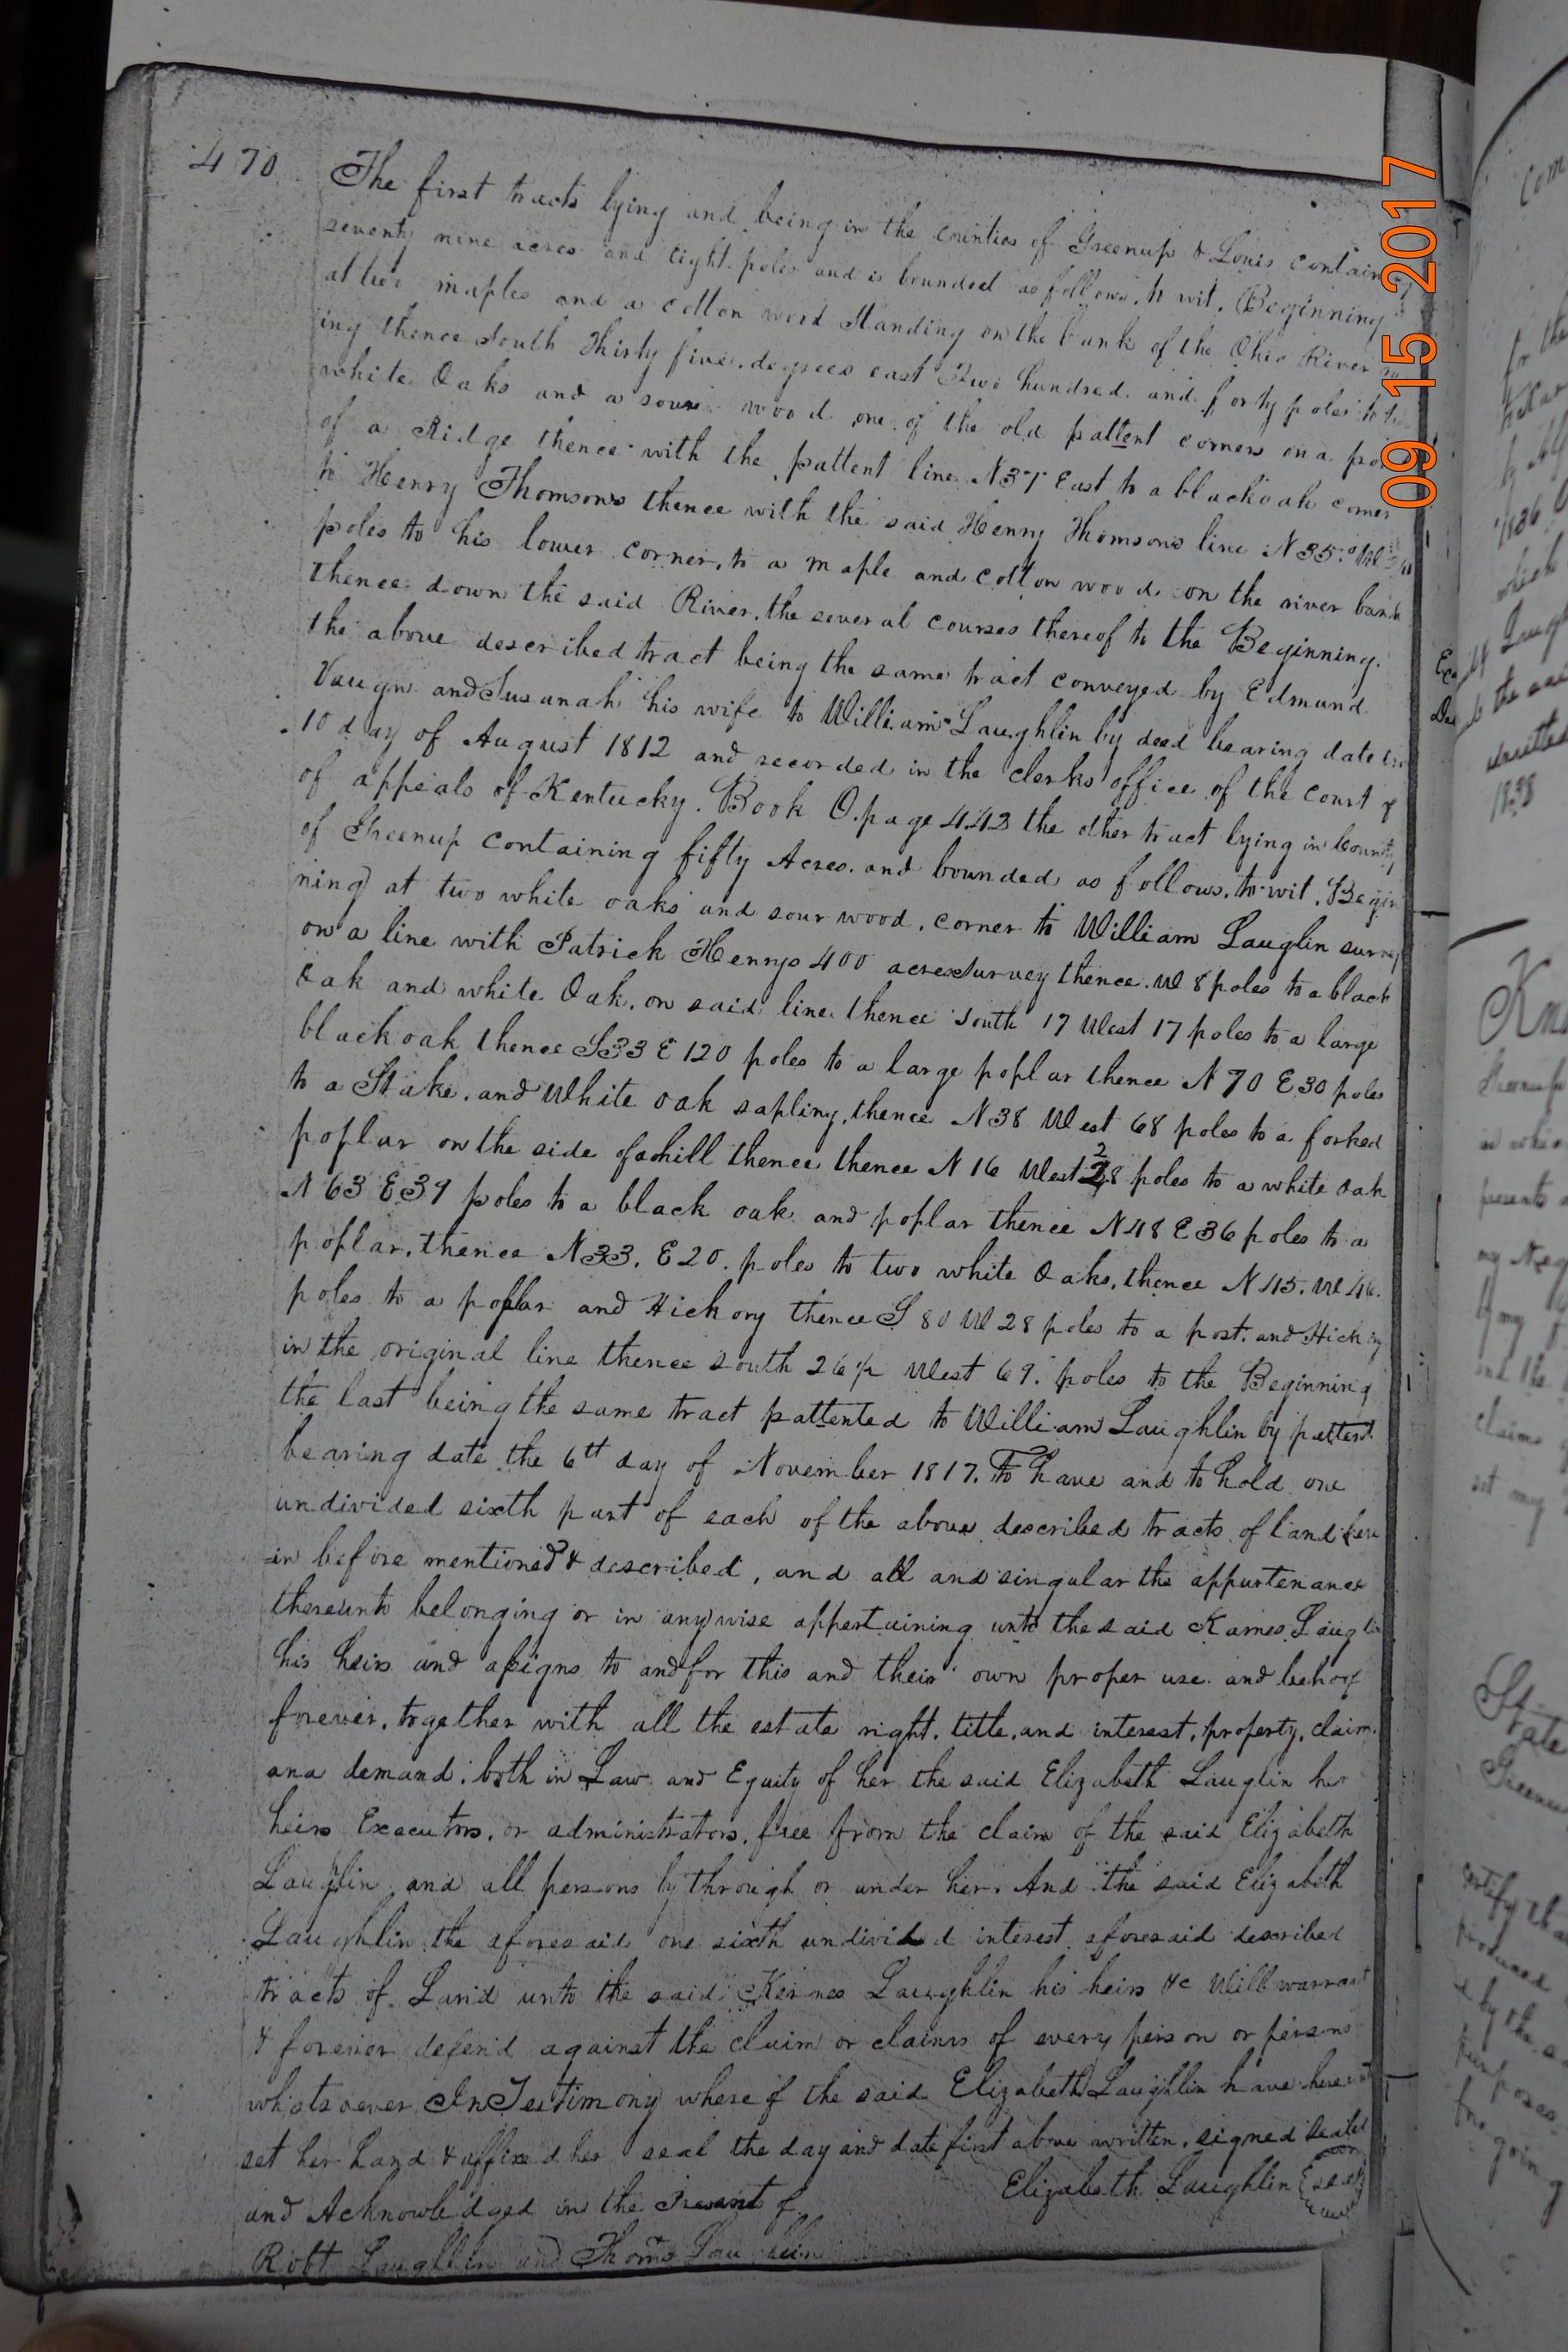 470
The first tracts lying and being in the counties of Greenup & Louis contain
seventy nine acres and eight poles and is bounded as follows, to wit, Beginning
at two maples and a cotton wood Standing on the bank of the Ohio River
ing thence South Thirty five degrees east Two hundred and forty poles to
white Oaks and a sour wood one of the old pattent corners on a
of a Ridge thence with the pattent line N37 East to a black oak corner
to Henry Thomsons thence with the said Henry Thomsons line N35°
poles to his lower corner, to a maple and cotton wood on the river bank
thence down the said River, the several courses thereof to the Beginning.
the above described tract being the same tract conveyed by Edmund
Vaugn and Susanah his wife to William Laughlin by deed bearing date
10 day of August 1812 and recorded in the clerks office of the court
of appeals of Kentucky. Book O. page 443 the other tract lying in County
of Greenup containing fifty Acres. and bounded as follows, to wit, Begin
ning at two white oaks and sour wood, corner to William Lauglin survey
on a line with Patrick Henrys 400 acres Survey thence W 8 poles to a black
Oak and white Oak, on said line thence South 17 West 17 poles to a large
black oak thence S33 E 120 poles to a large poplar thence N 70 E 30 poles
to a Stake, and White oak sapling, thence N38 West 68 poles to a forked
poplar on the side of a hill thence thence N 16 West 28 poles to a white Oak
N 63 E39 poles to a black oak and poplar thence N48 E 36 poles to a
poplar, thence N33. E 20. poles to two white Oaks, thence N45. W 46.
poles to a poplar and Hickory thence S 80 W 28 poles to a post. and Hickory
in the original line thence South 26 1/2 West 69. poles to the Beginning
the last being the same tract pattented to William Laughlin by pattent
bearing date the 6th day of November 1817. To have and to hold one
undivided sixth part of each of the above described tracts of land here
in before mentioned & described, and all and singular the appurtenances
thereunto belonging or in anywise appertaining unto the said Karnes Lauglin
his heirs and assigns to and for this and their own proper use and behoof
forever, together with all the estate right, title, and interest, property, claim.
ana demand, both in Law and Equity of her the said Elizabeth Lauglin her
heirs Executors, or administrators, free from the claim of the said Elizabeth
Lauglin and all persons by through or under her. And the said Elizabeth
Laughlin the aforesaid one sixth undivided interest aforesaid described
tracts of Land unto the said Kernes Laughlin his heirs &c Will warrant
& forever defend against the claim or claims of every person or persons
whatsoever In Testimony where of the said Elizabeth Laughlin have hereunto
set her hand & affixed her seal the day and date first above written. signed Sealed
and Acknowledged in the Presant of Elizabeth Laughlin seal
Robt Laughlin and Thoms Laughlin
09 15 2017